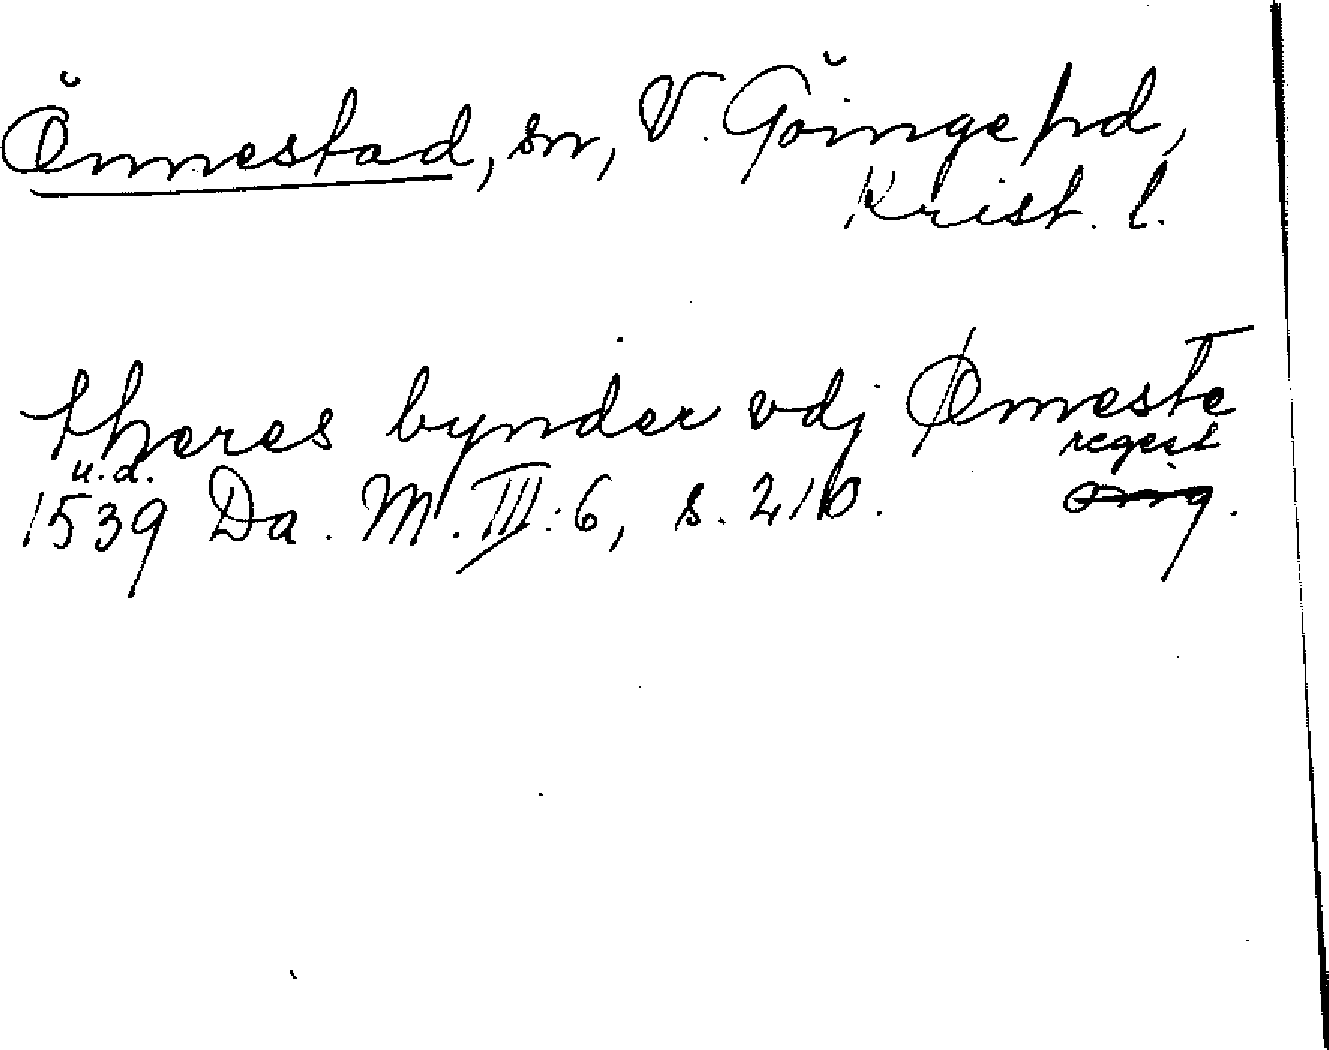 Önnestad, sn, V. Göinge hd,
Krist. l.
theres bynder vdj Ømeste
u.d. regest
1539 Da. M. III: 6, s. 210. orig.